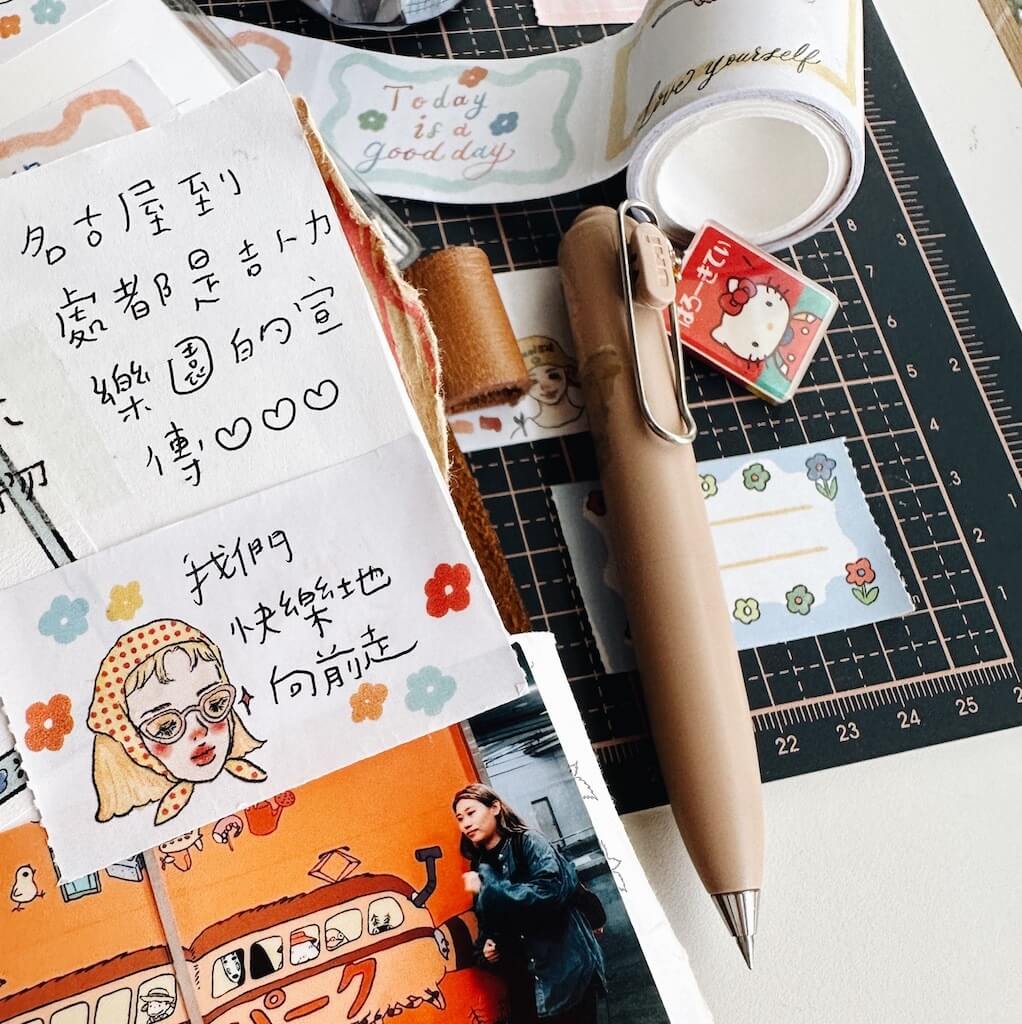 Today
is a
good day
Love yourself
名古屋到
處都是吉卜力
樂園的宣
傳♡♡♡
我們
快樂地
向前走
uni
はろーきてぃ
物
パーク
8
7
6
5
3
2
1
3
2
1
22
23
24
25